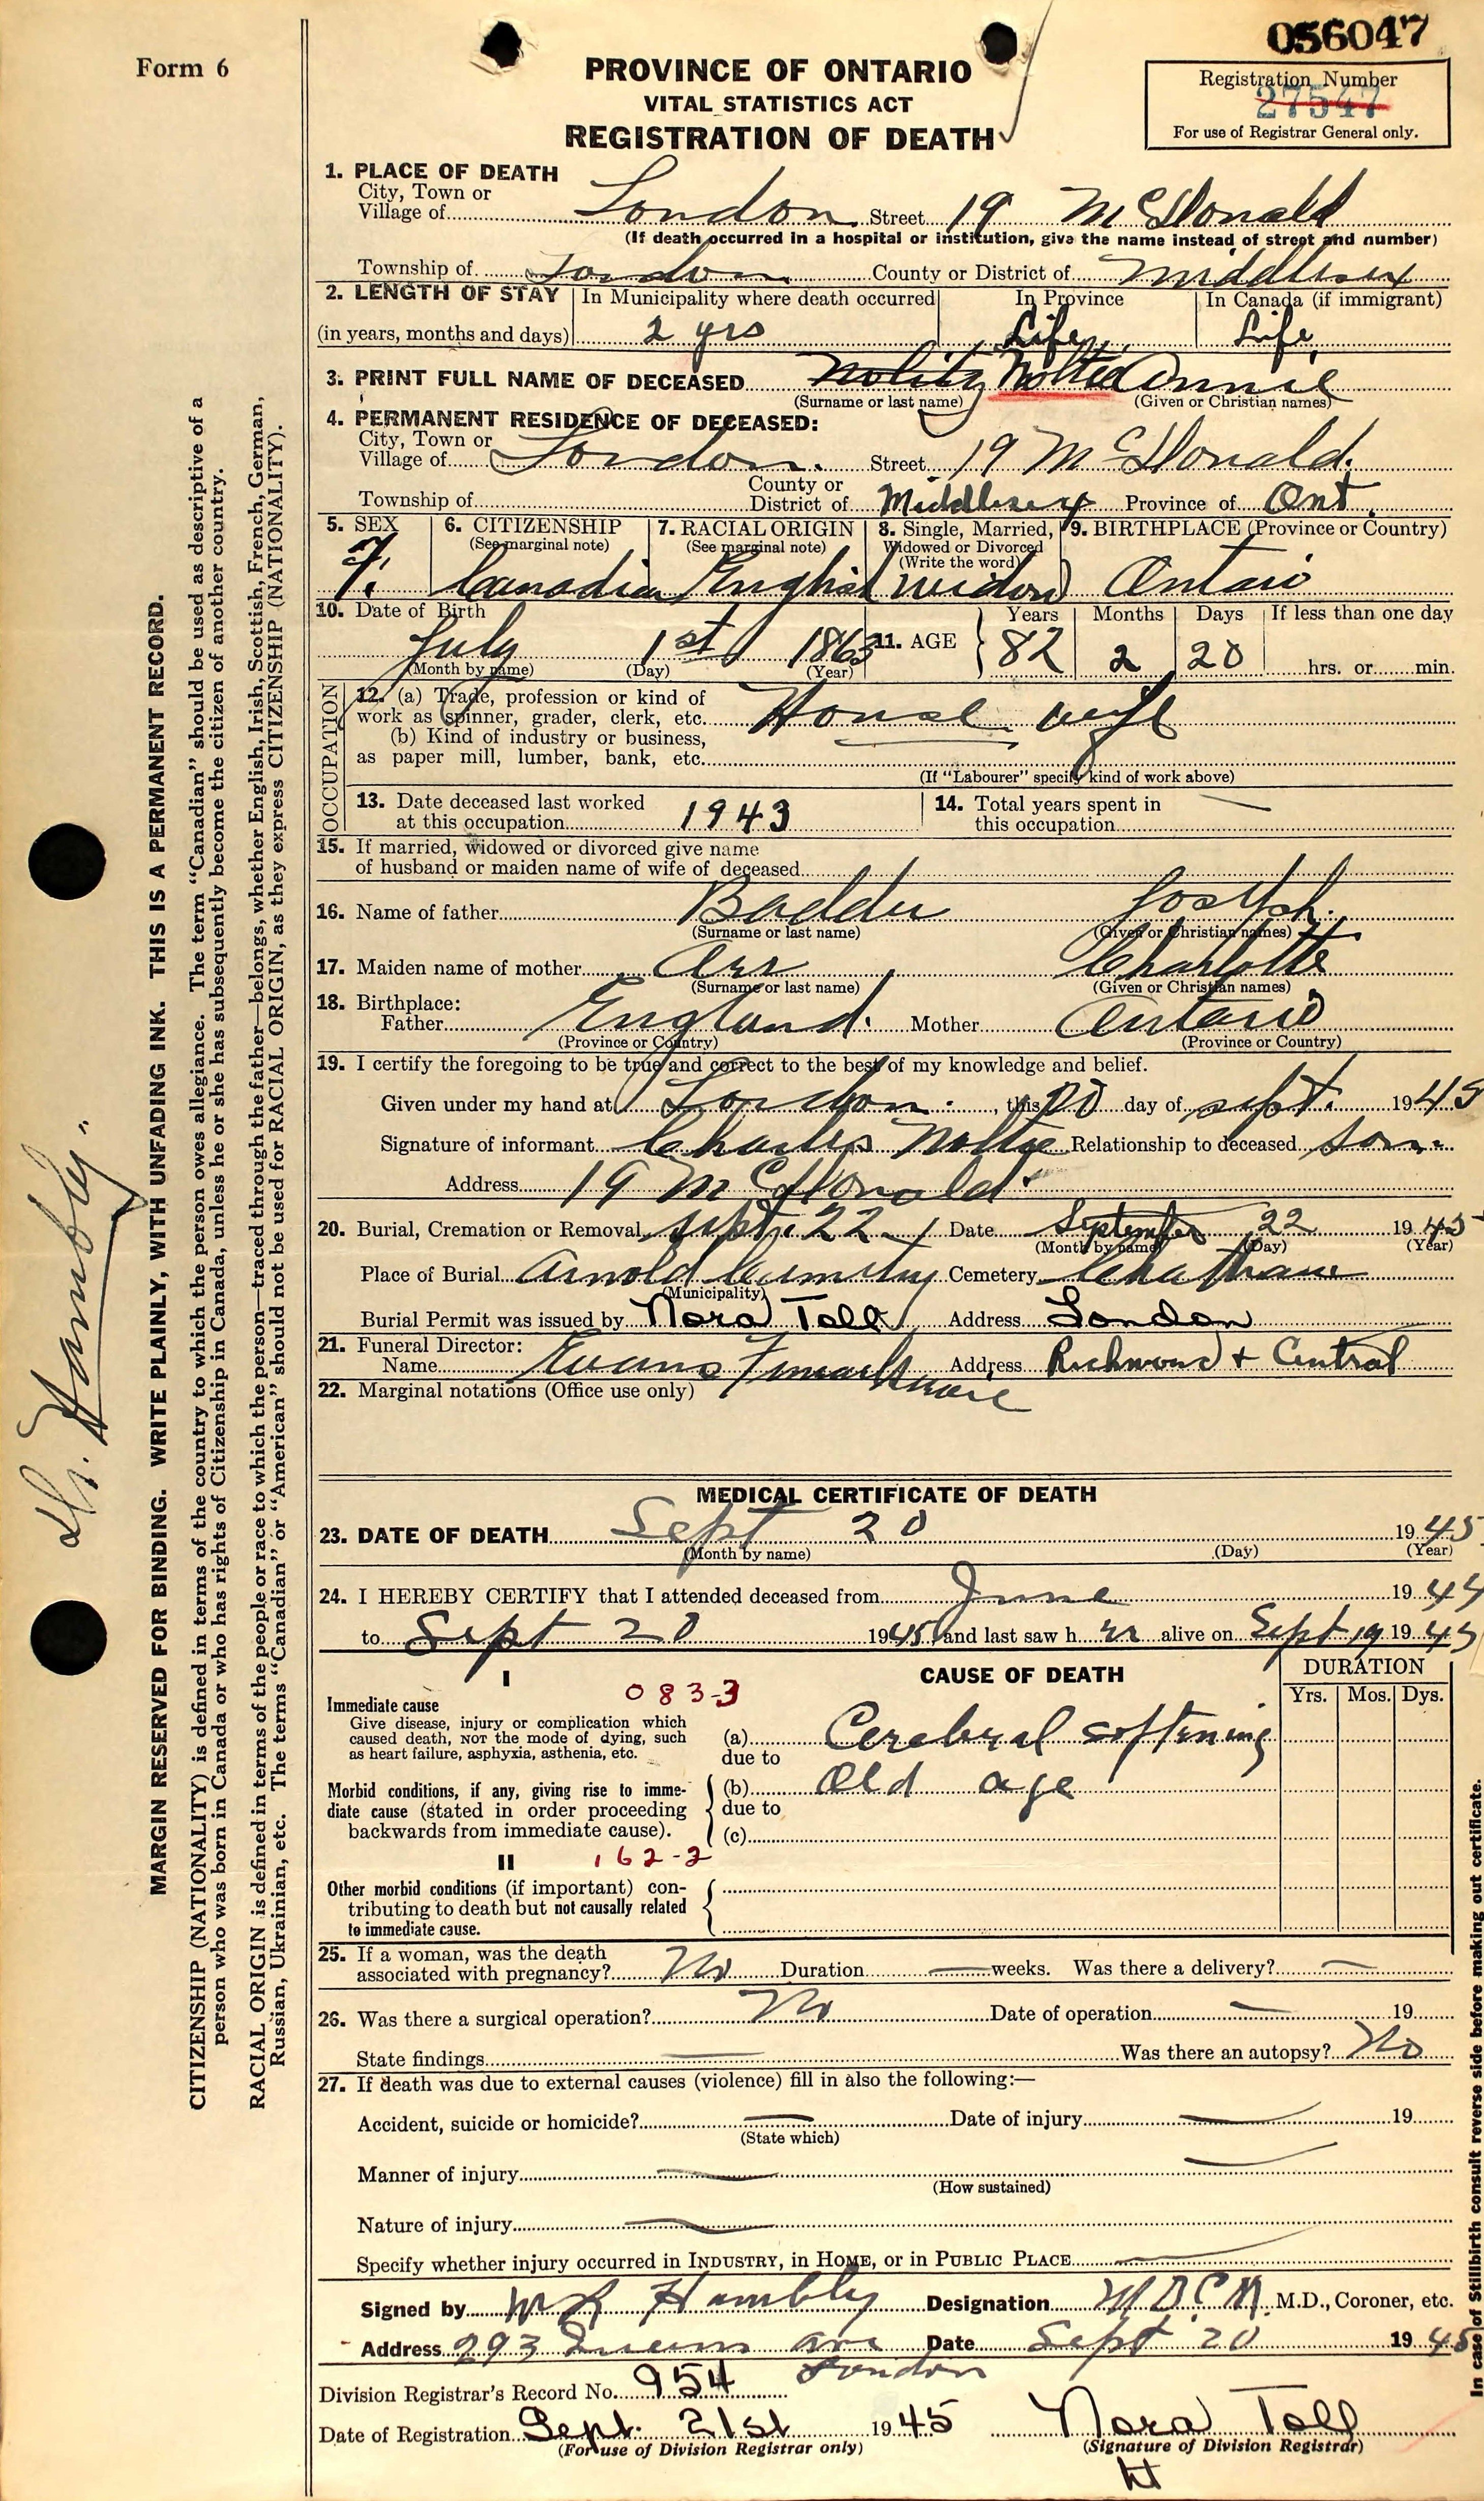 056047
Form 6
PROVINCE OF ONTARIO
VITAL STATISTICS ACT
REGISTRATION OF DEATH
Registration Number
27547
For use of Registrar General only.
1. PLACE OF DEATH
City, Town or
Village of London Street 19 McDonald
(If death occurred in a hospital or institution, give the name instead of street and number)
Township of London County or District of Middlesex
2. LENGTH OF STAY In Municipality where death occurred In Province In Canada (if immigrant)
(in years, months and days) 2 yrs Life Life
3. PRINT FULL NAME OF DECEASED Noltie Annie
(Surname or last name) (Given or Christian names)
4. PERMANENT RESIDENCE OF DECEASED:
City, Town or
Village of London. Street 19 McDonald.
Township of County or District of Middlesex Province of Ont.
5. SEX 6. CITIZENSHIP 7. RACIAL ORIGIN 8. Single, Married, 9. BIRTHPLACE (Province or Country)
(See marginal note) (See marginal note) Widowed or Divorced
(Write the word)
F. Canadian English widow Ontario
10. Date of Birth Years Months Days If less than one day
July 1st 1863 11. AGE 82 2 20 hrs. or min.
(Month by name) (Day) (Year)
OCCUPATION
12. (a) Trade, profession or kind of
work as spinner, grader, clerk, etc. House wife
(b) Kind of industry or business,
as paper mill, lumber, bank, etc.
(If "Labourer" specify kind of work above)
13. Date deceased last worked 14. Total years spent in
at this occupation 1943 this occupation —
15. If married, widowed or divorced give name
of husband or maiden name of wife of deceased
16. Name of father Badder Joseph.
(Surname or last name) (Given or Christian names)
17. Maiden name of mother Arr Charlotte
(Surname or last name) (Given or Christian names)
18. Birthplace:
Father England. Mother Ontario
(Province or Country) (Province or Country)
19. I certify the foregoing to be true and correct to the best of my knowledge and belief.
Given under my hand at London. , this 20 day of Sept. 1945
Signature of informant Charles Noltie Relationship to deceased son.
Address 19 McDonald.
20. Burial, Cremation or Removal Sept. 22 Date September 22 1945
(Month by name) (Day) (Year)
Place of Burial Arnold Cemetery Cemetery Chatham
(Municipality)
Burial Permit was issued by Nora Toll Address London
21. Funeral Director:
Name Evans Funeral Home Address Richmond + Central
22. Marginal notations (Office use only)
MEDICAL CERTIFICATE OF DEATH
23. DATE OF DEATH Sept 20 1945
(Month by name) (Day) (Year)
24. I HEREBY CERTIFY that I attended deceased from June 1944
to Sept 20 1945 and last saw h er alive on Sept 19 1945
I CAUSE OF DEATH DURATION
Yrs. Mos. Dys.
083-3
Immediate cause
Give disease, injury or complication which
caused death, NOT the mode of dying, such
as heart failure, asphyxia, asthenia, etc.
(a) Cerebral softening
due to
Morbid conditions, if any, giving rise to imme-
diate cause (stated in order proceeding
backwards from immediate cause).
(b) Old age
due to
(c)
II 162-2
Other morbid conditions (if important) con-
tributing to death but not causally related
to immediate cause.
25. If a woman, was the death
associated with pregnancy? No Duration — weeks. Was there a delivery? —
26. Was there a surgical operation? No Date of operation — 19
State findings — Was there an autopsy? No
27. If death was due to external causes (violence) fill in also the following:—
Accident, suicide or homicide? — Date of injury — 19
(State which)
Manner of injury —
(How sustained)
Nature of injury —
Specify whether injury occurred in INDUSTRY, in HOME, or in PUBLIC PLACE —
Signed by W R Hambly Designation M.D.C.M. M.D., Coroner, etc.
Address 293 Queens ave Date Sept 20 1945
London
Division Registrar's Record No. 954
Date of Registration Sept. 21st 1945 Nora Toll
(For use of Division Registrar only) (Signature of Division Registrar)
MARGIN RESERVED FOR BINDING. WRITE PLAINLY, WITH UNFADING INK. THIS IS A PERMANENT RECORD.
CITIZENSHIP (NATIONALITY) is defined in terms of the country to which the person owes allegiance. The term "Canadian" should be used as descriptive of a
person who was born in Canada or who has rights of Citizenship in Canada, unless he or she has subsequently become the citizen of another country.
RACIAL ORIGIN is defined in terms of the people or race to which the person—traced through the father—belongs, whether English, Irish, Scottish, French, German,
Russian, Ukrainian, etc. The terms "Canadian" or "American" should not be used for RACIAL ORIGIN, as they express CITIZENSHIP (NATIONALITY).
Dr. Hambly.
In case of Stillbirth consult reverse side before making out certificate.